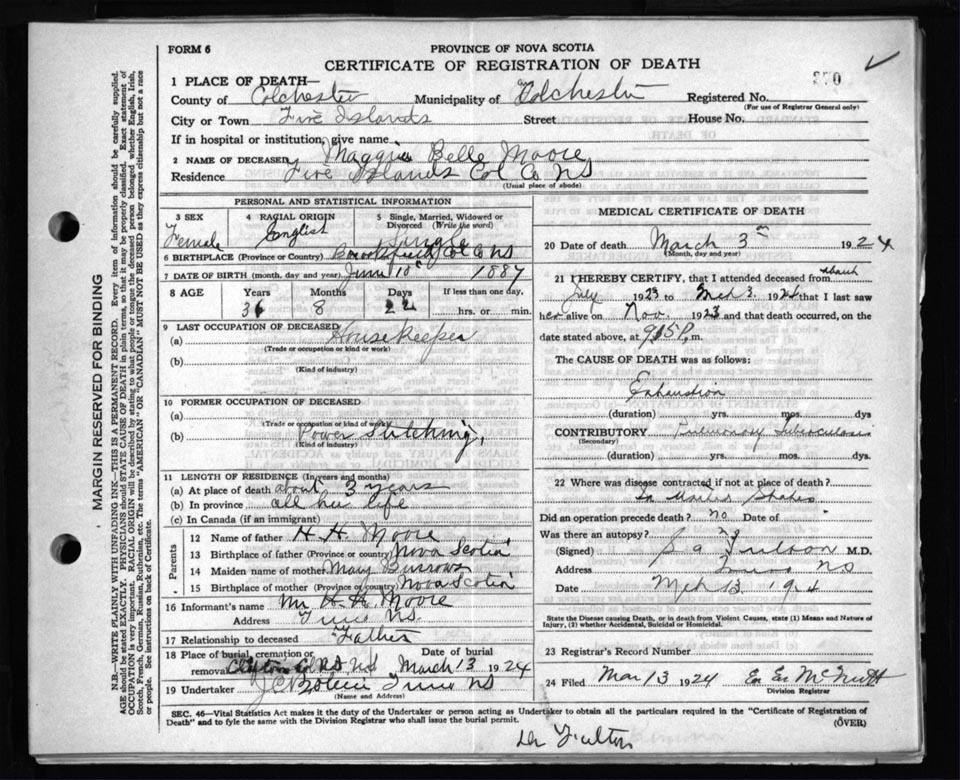 FORM 6
PROVINCE OF NOVA SCOTIA
CERTIFICATE OF REGISTRATION OF DEATH
370
1 PLACE OF DEATH—
County of Colchester Municipality of Colchester Registered No.
(For use of Registrar General only)
City or Town Five Islands Street House No.
If in hospital or institution, give name
2 NAME OF DECEASED Maggie Belle Moore
Residence Five Islands Col Co NS
(Usual place of abode)
PERSONAL AND STATISTICAL INFORMATION
3 SEX 4 RACIAL ORIGIN 5 Single, Married, Widowed or Divorced (Write the word)
Female English Single
6 BIRTHPLACE (Province or Country) Brookfield Col Co NS
7 DATE OF BIRTH (month, day and year) June 10 1887
8 AGE Years Months Days If less than one day,
36 8 22 hrs. or min.
9 LAST OCCUPATION OF DECEASED
(a) Housekeeper
(Trade or occupation or kind or work)
(b)
(Kind of industry)
10 FORMER OCCUPATION OF DECEASED
(a)
(Trade or occupation or kind of work)
(b) Power Stitching
(Kind of industry)
11 LENGTH OF RESIDENCE (In years and months)
(a) At place of death about 3 years
(b) In province all her life
(c) In Canada (if an immigrant)
Parents
12 Name of father H. H. Moore
13 Birthplace of father (Province or country) Nova Scotia
14 Maiden name of mother Mary Burrows
15 Birthplace of mother (Province or country) Nova Scotia
16 Informant's name Mr H. H. Moore
Address Truro NS.
17 Relationship to deceased Father
18 Place of burial, cremation or removal Clifton Col Co NS Date of burial March 13 1924
19 Undertaker Truro NS
(Name and Address)
MEDICAL CERTIFICATE OF DEATH
20 Date of death March 3rd 1924
(Month, day and year)
21 I HEREBY CERTIFY, that I attended deceased from about
July 1923 to Mch 3 1924 that I last saw
her alive on Nov. 1923 and that death occurred, on
date stated above, at 9.15 P. m.
The CAUSE OF DEATH was as follows:
Exhaustion
(duration) yrs. mos. dys
CONTRIBUTORY Pulmonary Tuberculosis
(Secondary)
(duration) yrs. mos. dys.
22 Where was disease contracted if not at place of death?
In United States
Did an operation precede death? no Date of
Was there an autopsy? no
(Signed) Fulton M.D.
Address Truro NS
Date Mch 13. 1924
State the Disease causing Death, or in death from Violent Causes, state (1) Means and Nature of
Injury, (2) whether Accidental, Suicidal or Homicidal.
23 Registrar's Record Number
24 Filed Mar 13 1924 E. E. McNutt
Division Registrar
SEC. 46—Vital Statistics Act makes it the duty of the Undertaker or person acting as Undertaker to obtain all the particulars required in the "Certificate of Registration of
Death" and to fyle the same with the Division Registrar who shall issue the burial permit.
(OVER)
Dr Fulton
MARGIN RESERVED FOR BINDING
N.B.—WRITE PLAINLY WITH UNFADING INK—THIS IS A PERMANENT RECORD. Every item of information should be carefully supplied.
AGE should be stated EXACTLY. PHYSICIANS should STATE CAUSE OF DEATH in plain terms, so that it may be properly classified. Exact statement of
OCCUPATION is very important. RACIAL ORIGIN will be described by stating to what people or tongue the deceased person belonged whether English, Irish,
Scotch, French, German, Russian, Ruthenian, etc. The terms "AMERICAN" OR "CANADIAN" MUST NOT BE USED as they express citizenship but not a race
or people. See instructions on back of Certificate.